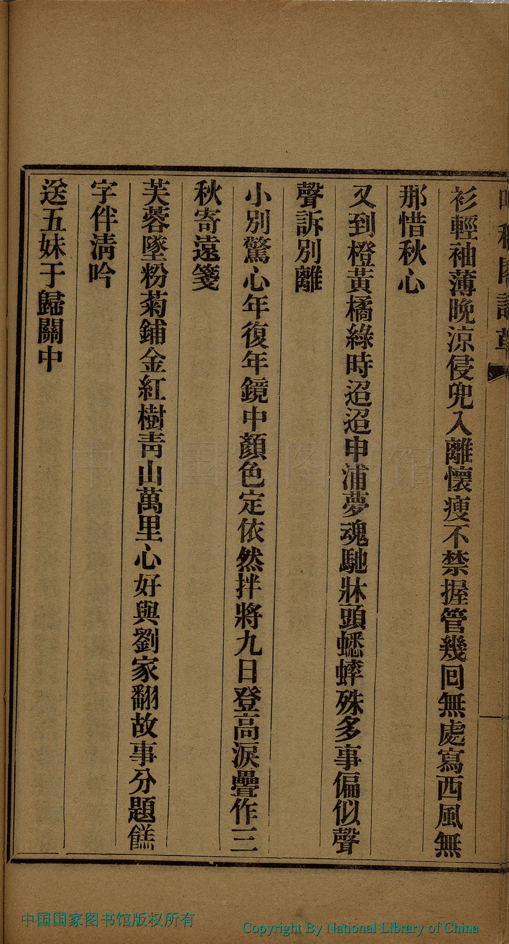 衫輕袖薄晚涼侵兜入離懷瘦不禁握管幾回無處寫西風無
那惜秋心
又到橙黃橘綠時迢迢申浦夢魂馳牀頭蟋蟀殊多事偏似聲
聲訴別離
小別驚心年復年鏡中顏色定依然拌將九日登高淚疊作三
秋寄遠箋
芙蓉墜粉菊鋪金紅樹靑山萬里心好與劉家翻故事分題餻
字伴淸吟
送五妹于歸關中
中国国家图书馆版权所有
Copyright By National Library of China